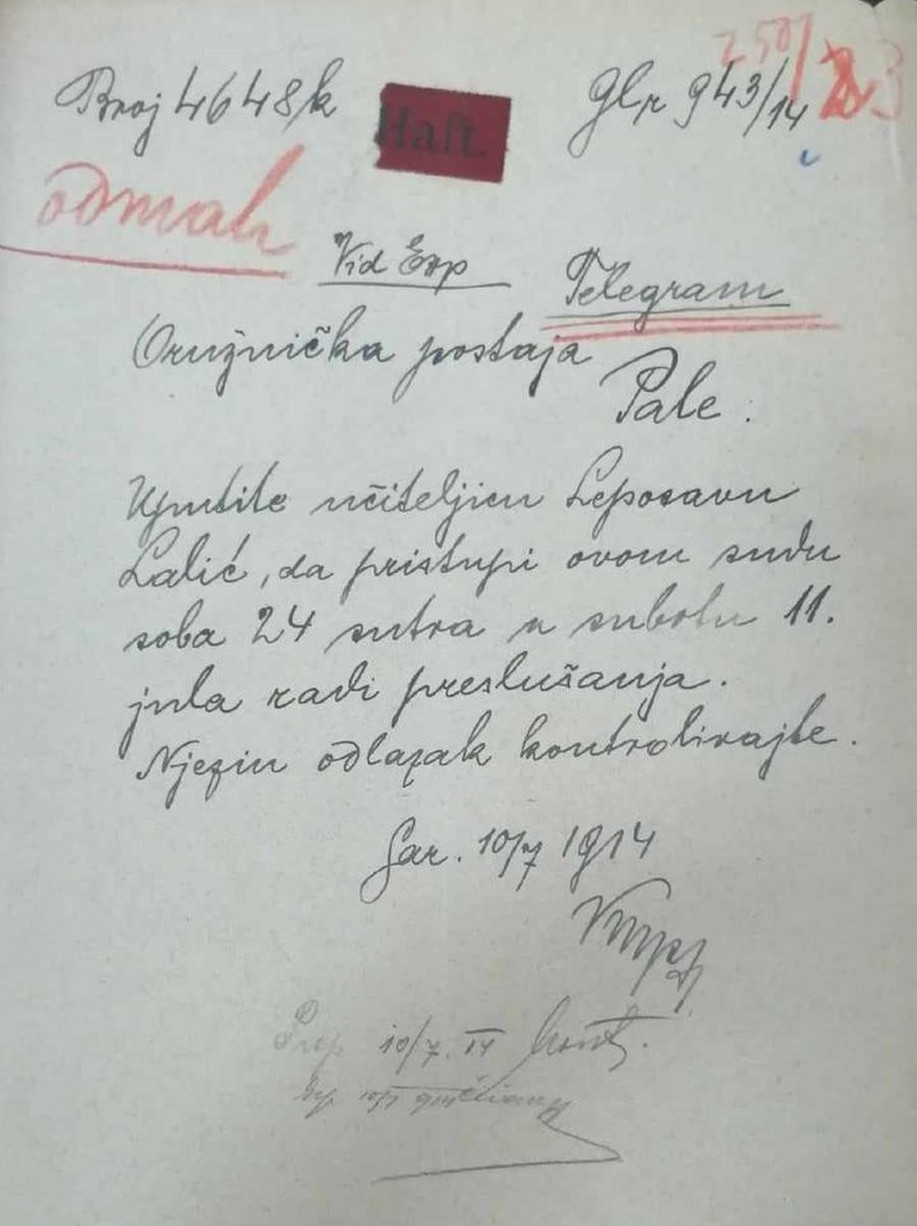 250/
23
Broj 4648/k
Haft.
Glr 943/14
odmah
Vid Exp
Telegram
Oružnička postaja
Pale.
Uputite učiteljicu Leposavu
Lalić, da pristupi ovom sudu
soba 24 sutra u subotu 11.
jula radi preslušanja.
Njezin odlazak kontrolirajte.
Sar. 10/7 1914
10/7. 14